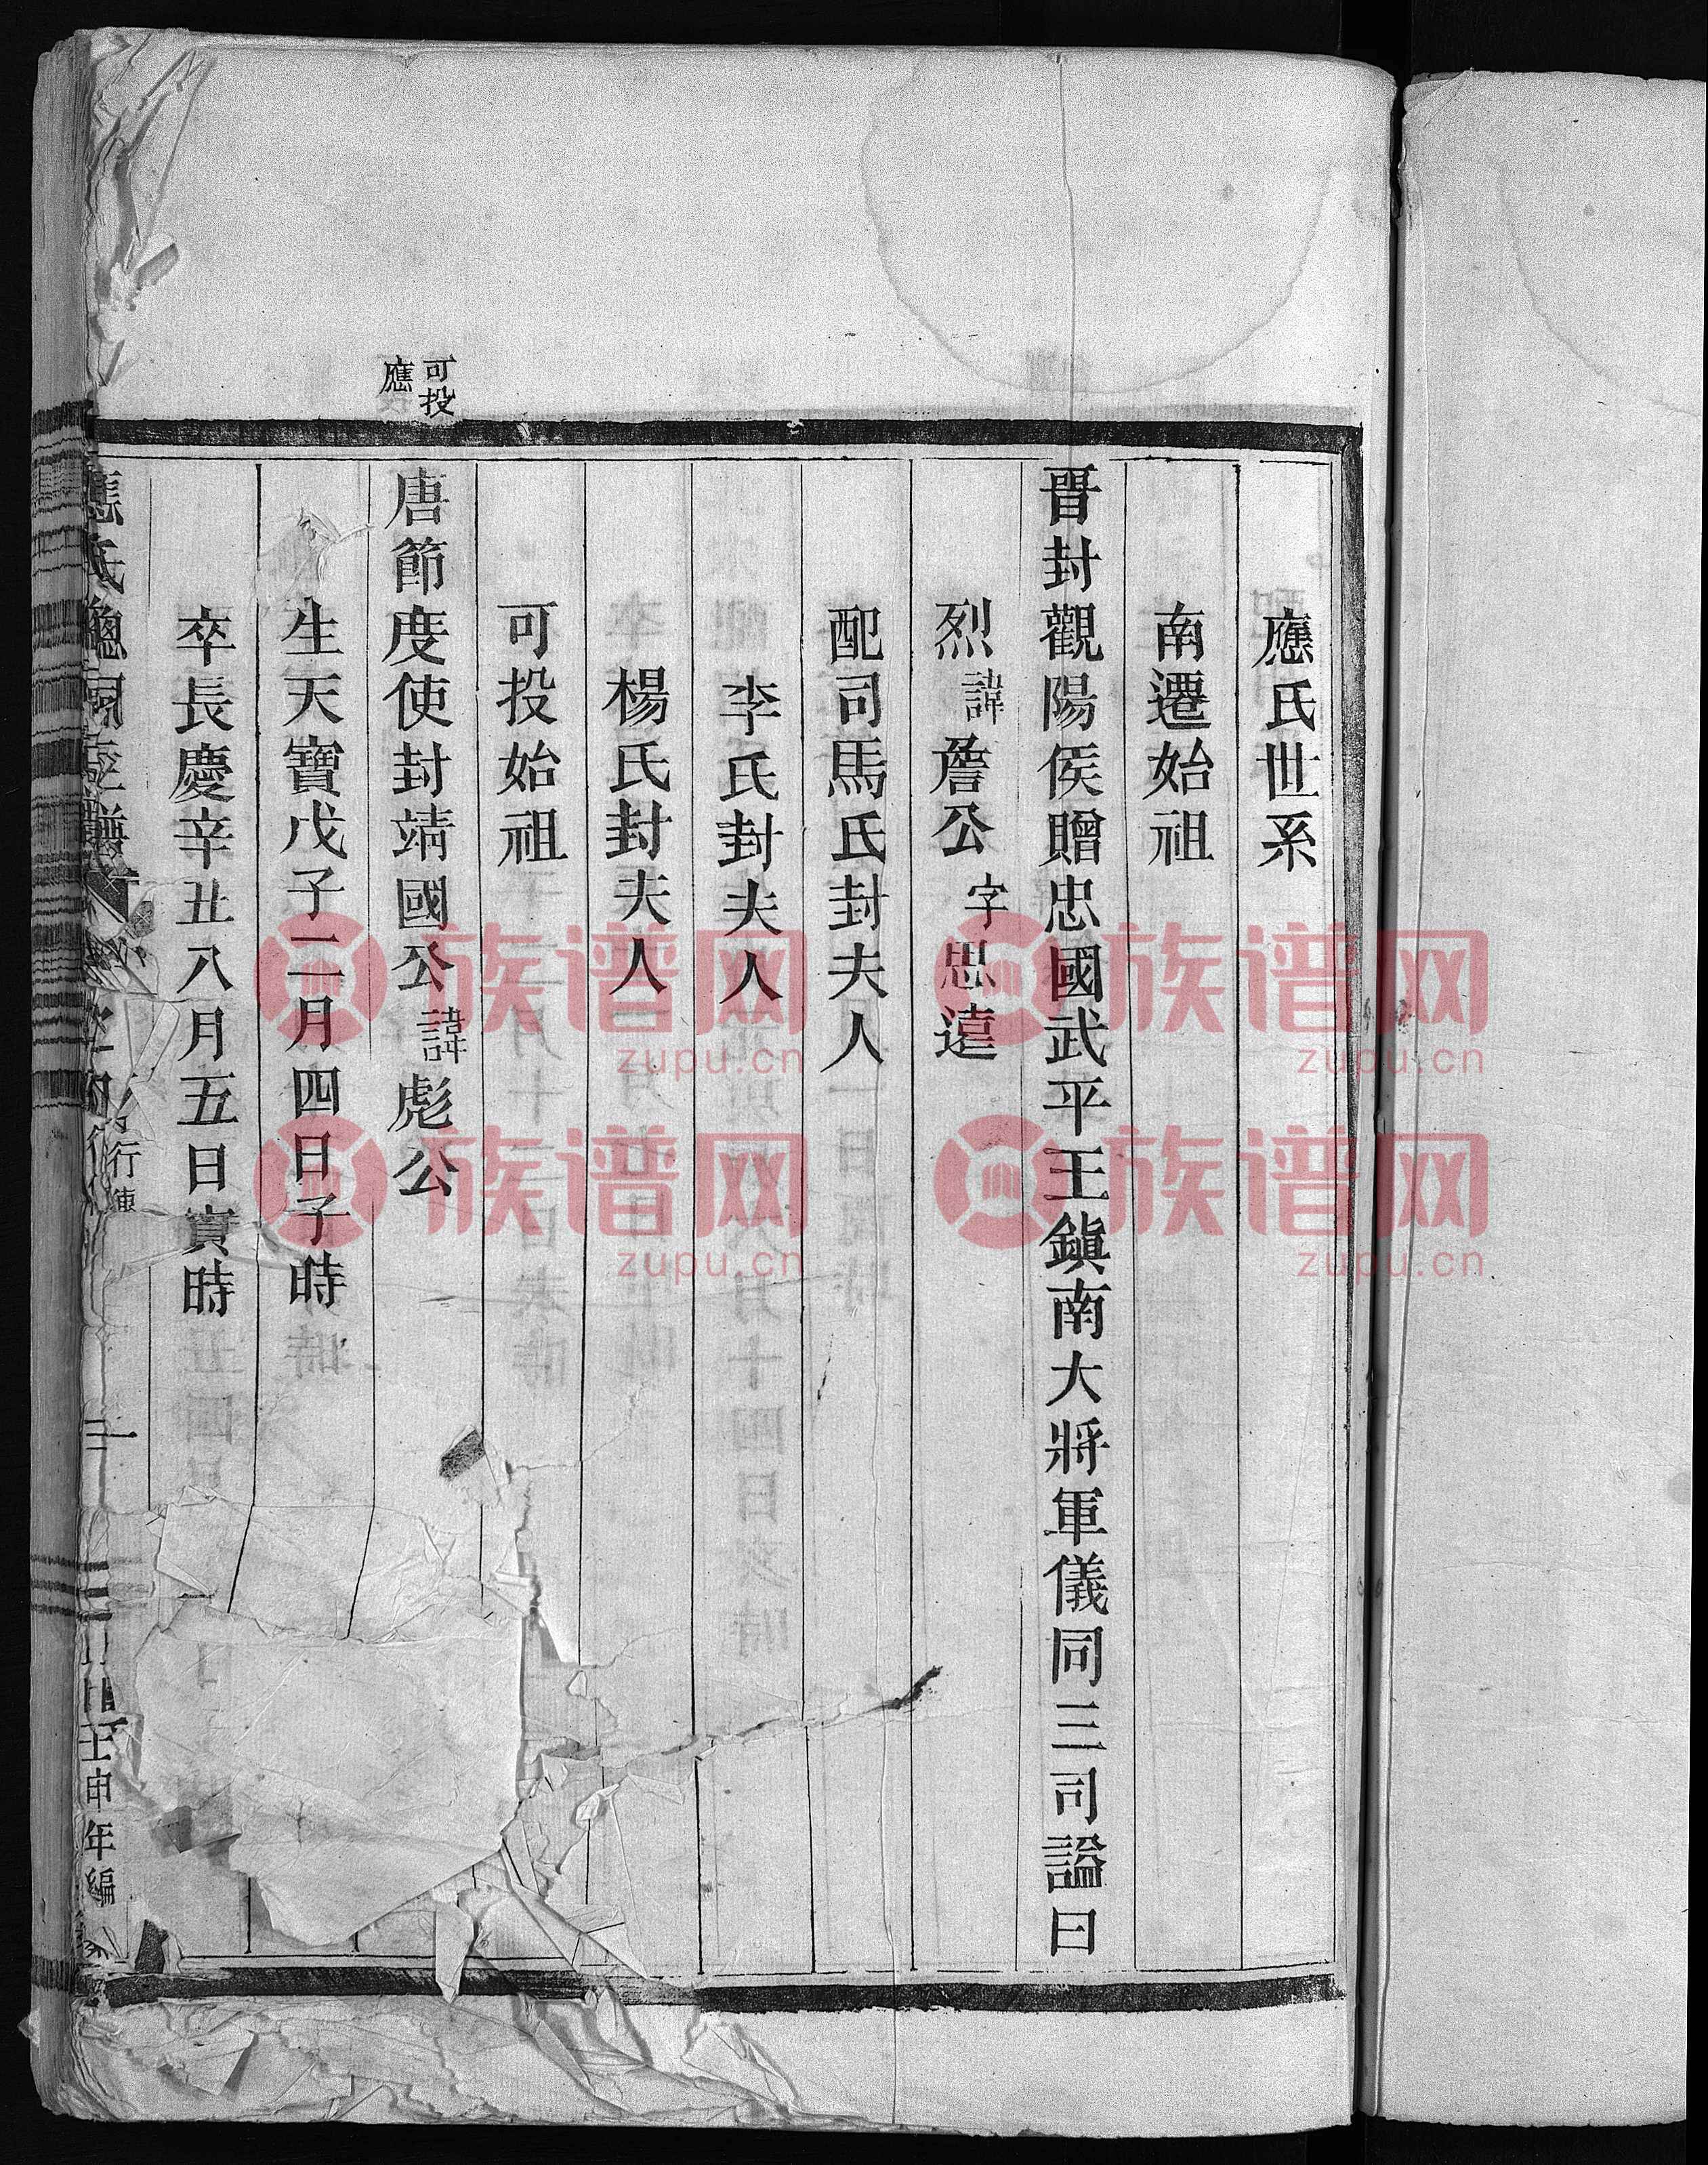 應氏世系
南遷始祖
晉封觀陽侯贈忠國武平王鎭南大將軍儀同三司謚曰
烈諱詹公字思遠
配司馬氏封夫人
李氏封夫人
楊氏封夫人
可投始祖
可投
應
唐節度使封靖國公諱彪公
生天寶戊子二月四日子時
卒長慶辛丑八月五日寅時
應氏總祠
行傳
一
壬申年編
族谱网
zupu.cn
族谱网
zupu.cn
族谱网
zupu.cn
族谱网
zupu.cn